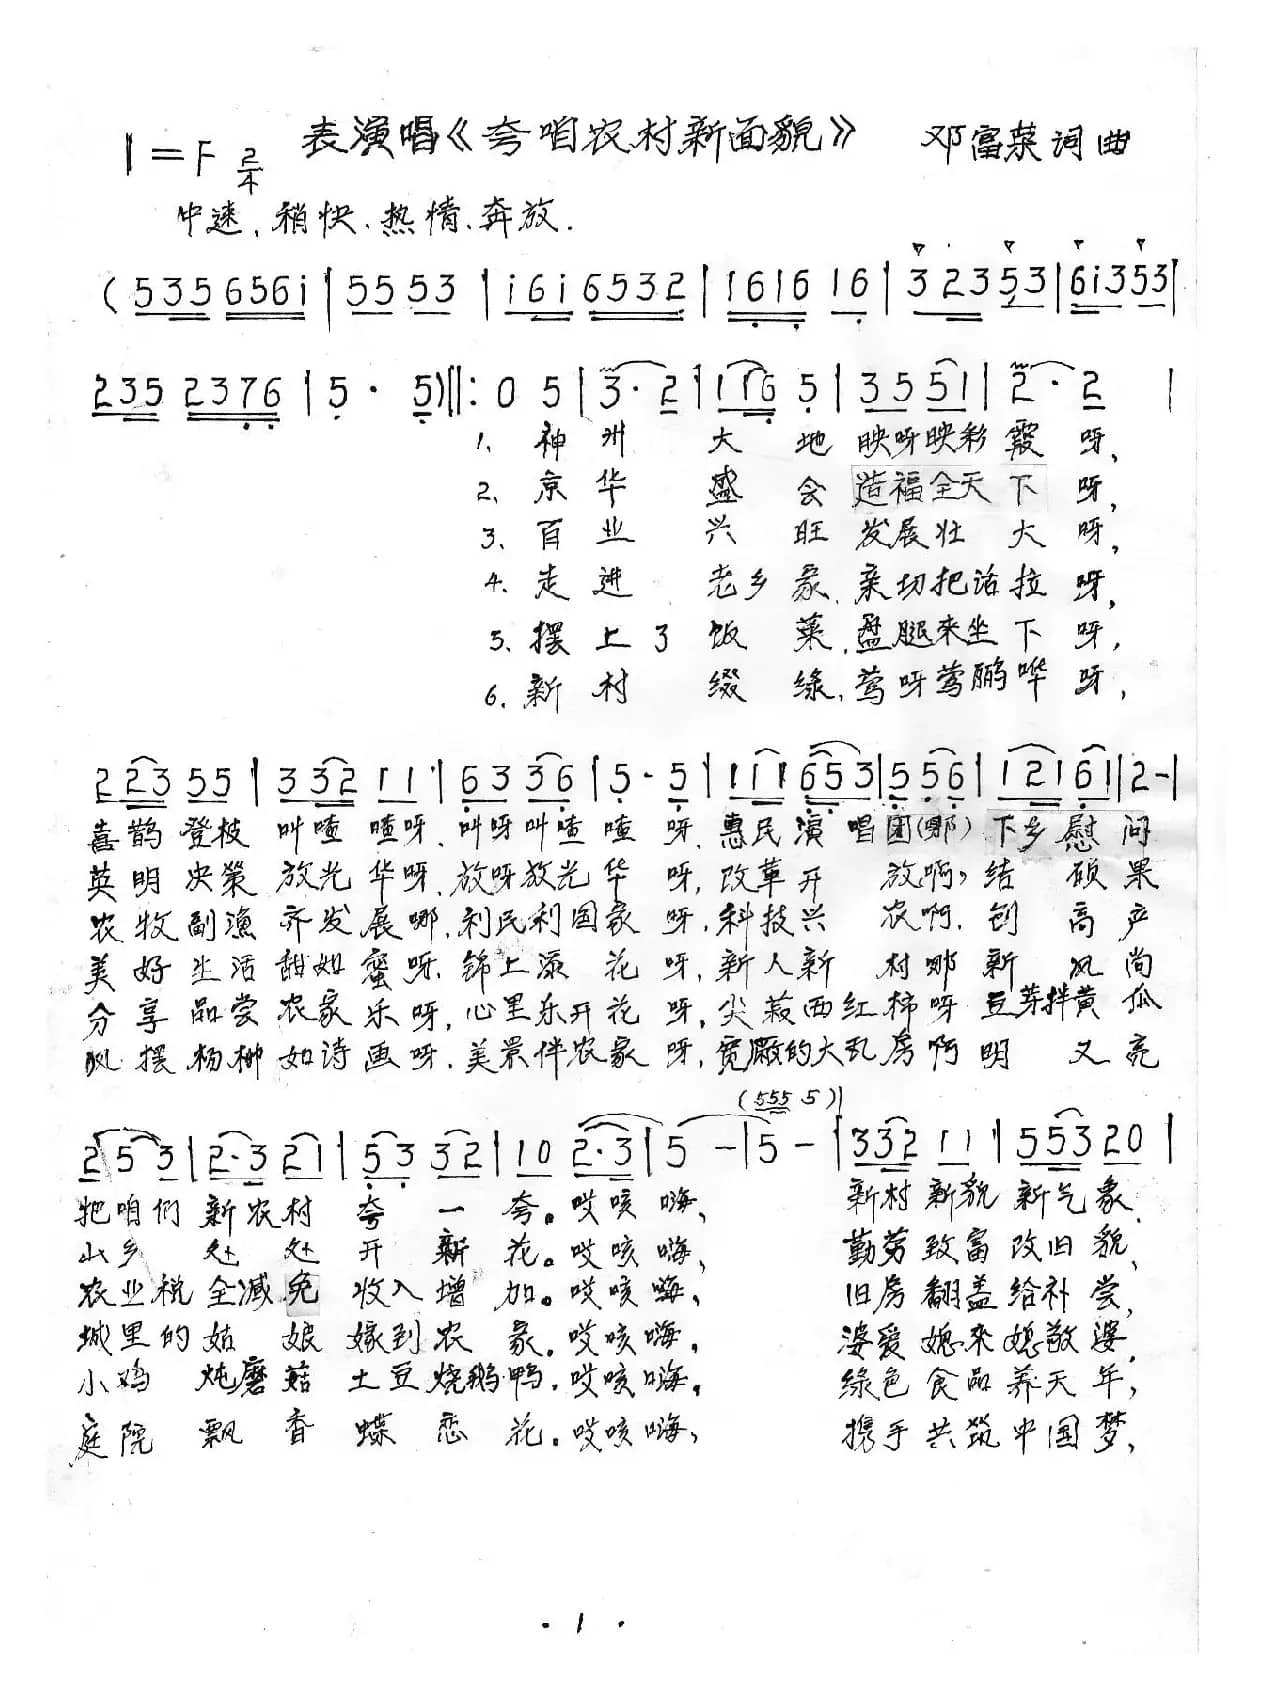 1=F 2/4 表演唱《夸咱农村新面貌》 邓富荣词曲
中速、稍快、热情、奔放.
(535 6561 | 55 53 | i6i 6532 | 1616 16 | 3 23 53 | 6i3 53 |
235 2376 | 5· 5)‖: 0 5 | 3· 2 | 116 5 | 35 51 | 2· 2 |
1、神州大地映呀映彩霞呀,
2、京华盛会造福全天下呀,
3、百业兴旺发展壮大呀,
4、走进老乡家,亲切把话拉呀,
5、摆上了饭菜,盘腿来坐下呀,
6、新村缀绿,莺呀莺鹂哗呀,
223 55 | 332 11 | 63 36 | 5· 5 | 111 653 | 5 56 | 121 61 | 2- |
喜鹊登枝叫喳喳呀,叫呀叫喳喳呀,惠民演唱团(哪)下乡慰问
英明决策放光华呀,放呀放光华呀,改革开放啊,结硕果
农牧副渔齐发展哪,利民利国家呀,科技兴农啊,创高产
美好生活甜如蜜呀,锦上添花呀,新人新村哪新风尚
分享品尝农家乐呀,心里乐开花呀,尖菽西红柿呀豆芽拌黄瓜
风摆杨柳如诗画呀,美景伴农家呀,宽厰的大乱房啊明又亮
(555 5)
2 5 3 | 2·3 21 | 53 32 | 10 2·3 | 5 - | 5 - | 332 11 | 553 20 |
把咱们新农村夸一夸。哎咳嗨, 新村新貌新气象,
山乡处处开新花。哎咳嗨, 勤劳致富改旧貌,
农业税全减免收入增加。哎咳嗨, 旧房翻盖给补尝,
城里的姑娘嫁到农家。哎咳嗨, 婆爱媳来媳敬婆,
小鸡炖磨菇土豆烧鹅鸭,哎咳嗨, 绿色食品养天年,
庭院飘香蝶恋花。哎咳嗨, 携手共筑中国梦,
·1·